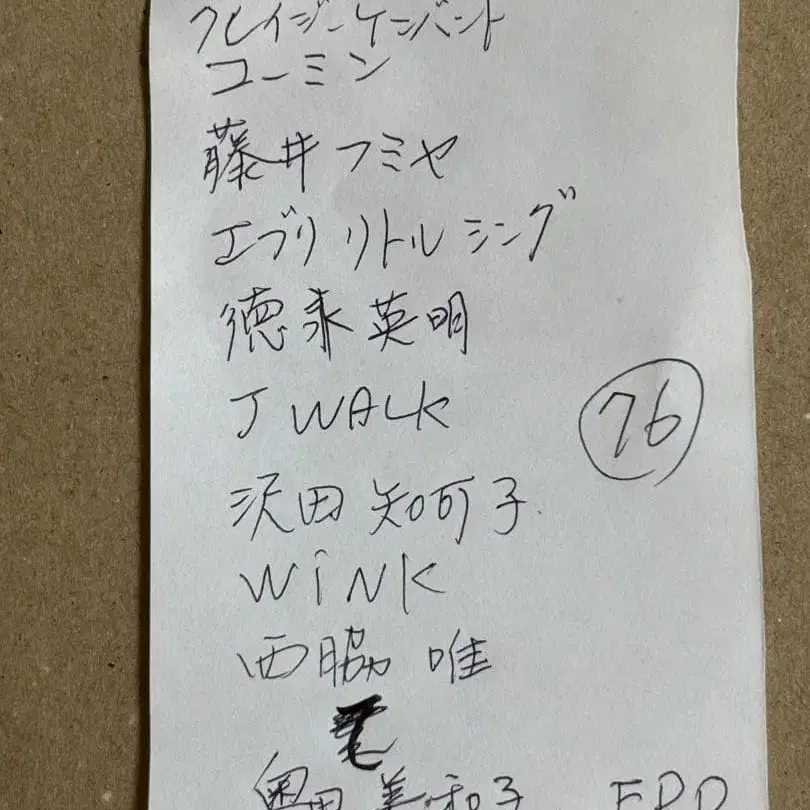 クレイジーケンバンド
コーミン
藤井フミヤ
エブリリトルシング
徳永英明
J WALK
76
沢田知可子
WiNK
西脇唯
奥田美和子